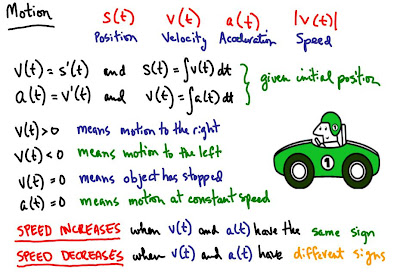 Motion s(t) v(t) a(t) |v(t)|
Position Velocity Acceleration Speed
v(t) = s'(t) and s(t) = ∫v(t) dt
a(t) = v'(t) and v(t) = ∫a(t) dt } given initial position
v(t) > 0 means motion to the right
v(t) < 0 means motion to the left
v(t) = 0 means object has stopped
a(t) = 0 means motion at constant speed
1
SPEED INCREASES when v(t) and a(t) have the same sign
SPEED DECREASES when v(t) and a(t) have different signs